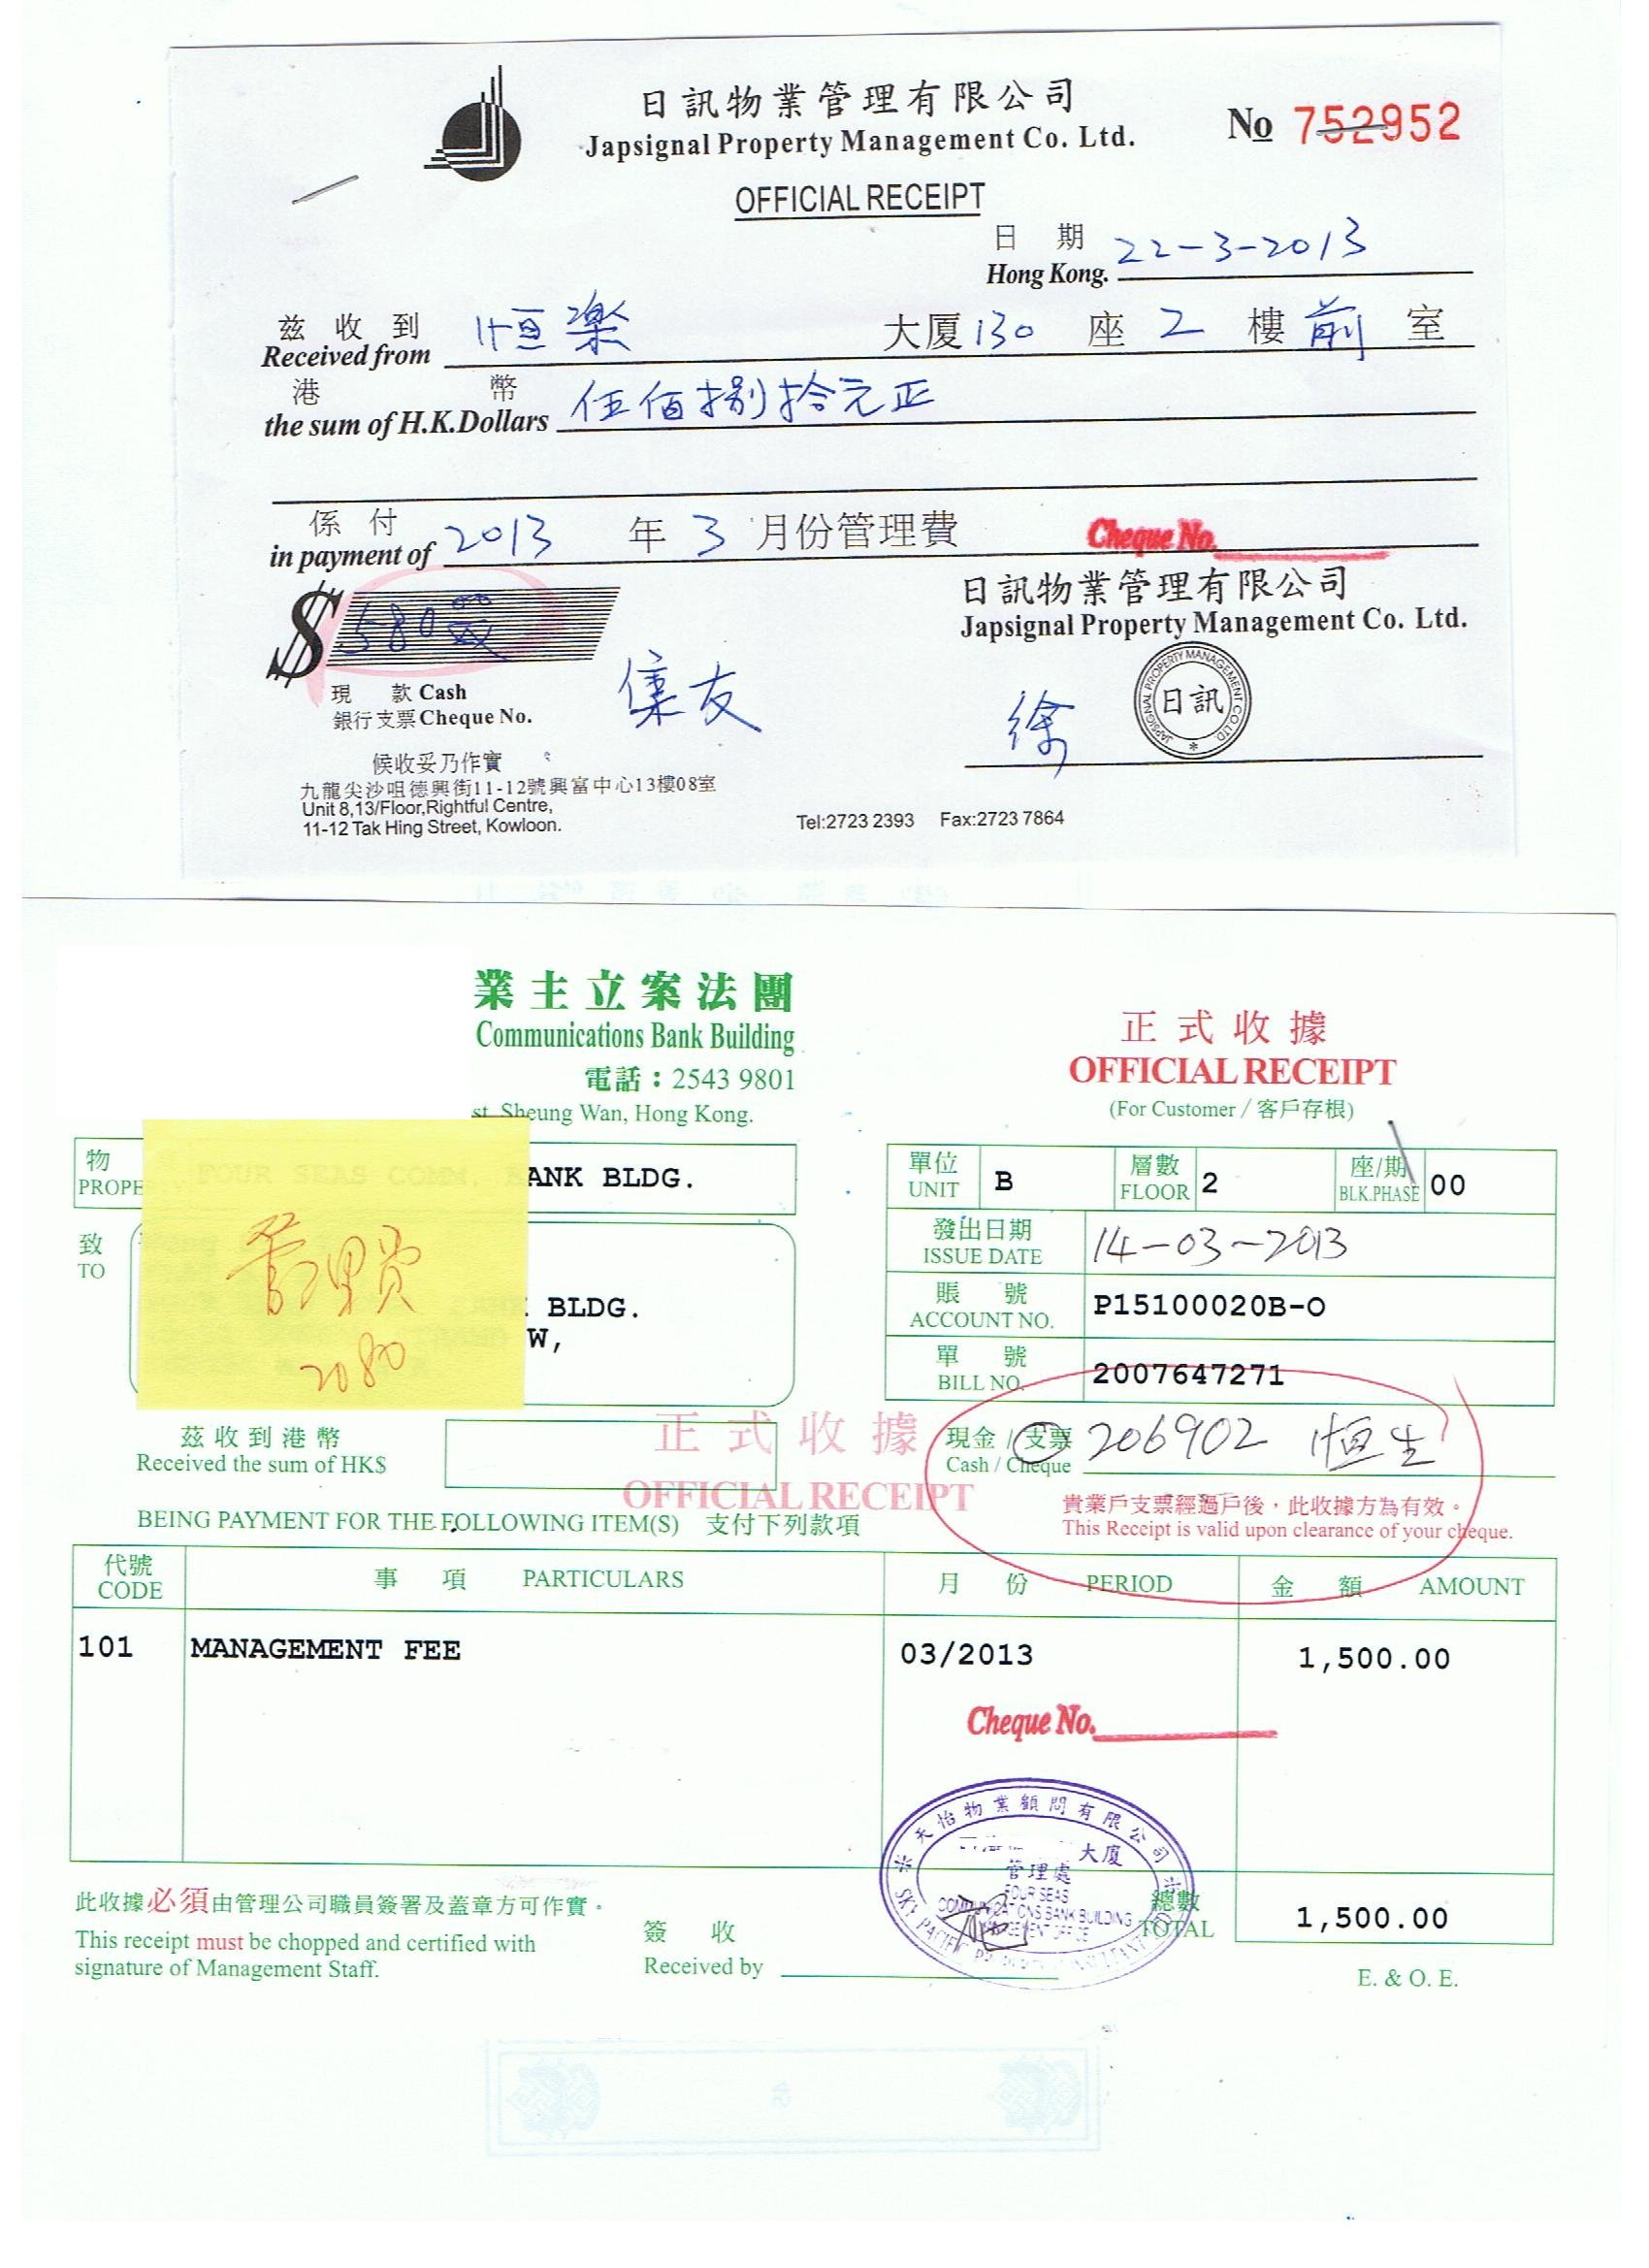 日訊物業管理有限公司
Japsignal Property Management Co. Ltd.
No 752952
OFFICIAL RECEIPT
日 期
Hong Kong. 22-3-2013
茲收到 恒樂 大厦 130 座 2 樓 前 室
Received from
港幣
the sum of H.K.Dollars 伍佰捌拾元正
係付
in payment of 2013 年 3 月份管理費 Cheque No.
$ 580
日訊物業管理有限公司
Japsignal Property Management Co. Ltd.
現款 Cash
銀行支票 Cheque No. 集友
徐
JAPSIGNAL PROPERTY MANAGEMENT CO. LTD.
日訊
候收妥乃作實
九龍尖沙咀德興街11-12號興富中心13樓08室
Unit 8,13/Floor,Rightful Centre,
11-12 Tak Hing Street, Kowloon.
Tel:2723 2393 Fax:2723 7864
業主立案法團
Communications Bank Building
電話：2543 9801
st, Sheung Wan, Hong Kong.
正式收據
OFFICIAL RECEIPT
(For Customer / 客戶存根)
物
PROPE FOUR SEAS COMM. BANK BLDG.
單位 UNIT B
層數 FLOOR 2
座/期 BLK.PHASE 00
致
TO
BLDG.
W,
管理費
2080
發出日期
ISSUE DATE 14-03-2013
賬號
ACCOUNT NO. P15100020B-O
單號
BILL NO. 2007647271
茲收到港幣
Received the sum of HK$
正式收據
OFFICIAL RECEIPT
現金 / 支票 206902 恒生
Cash / Cheque
貴業戶支票經過戶後，此收據方為有效。
This Receipt is valid upon clearance of your cheque.
BEING PAYMENT FOR THE FOLLOWING ITEM(S) 支付下列款項
代號 CODE 事項 PARTICULARS 月份 PERIOD 金額 AMOUNT
101 MANAGEMENT FEE 03/2013 1,500.00
Cheque No.
天怡物業顧問有限公司
大廈
管理處
FOUR SEAS
COMMUNICATIONS BANK BUILDING
MANAGEMENT OFFICE
SKY PACIFIC
此收據必須由管理公司職員簽署及蓋章方可作實。
This receipt must be chopped and certified with
signature of Management Staff.
簽收
Received by
總數
TOTAL 1,500.00
E. & O. E.